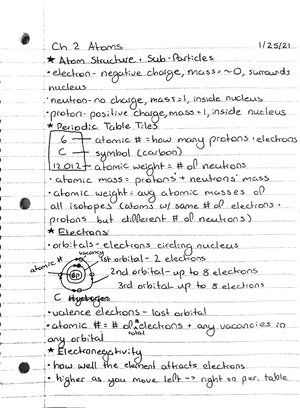 Ch. 2 Atoms 1/25/21
★ Atom Structure • Sub-Particles
• electron- negative charge, mass = ~0, surrounds
nucleus
• neutron- no charge, mass = 1, inside nucleus
• proton- positive charge, mass = 1, inside nucleus
★ Periodic Table Tiles
6 — atomic # = how many protons • electrons
C — symbol (carbon)
12.012 — atomic weight = # of neutrons
• atomic mass = protons' + neutrons' mass
• atomic weight = avg atomic masses of
all isotopes (atoms w/ same # of electrons •
protons but different # of neutrons)
★ Electrons
• orbitals - electrons circling nucleus
vacancy
atomic # 1st orbital - 2 electrons
6p 2nd orbital - up to 8 electrons
3rd orbital - up to 8 electrons
C Hydrogen
• valence electrons - last orbital
• atomic # = # of electrons + any vacancies in
total
any orbital
★ Electronegativity
• how well the element attracts electrons
• higher as you move left -> right on per. table